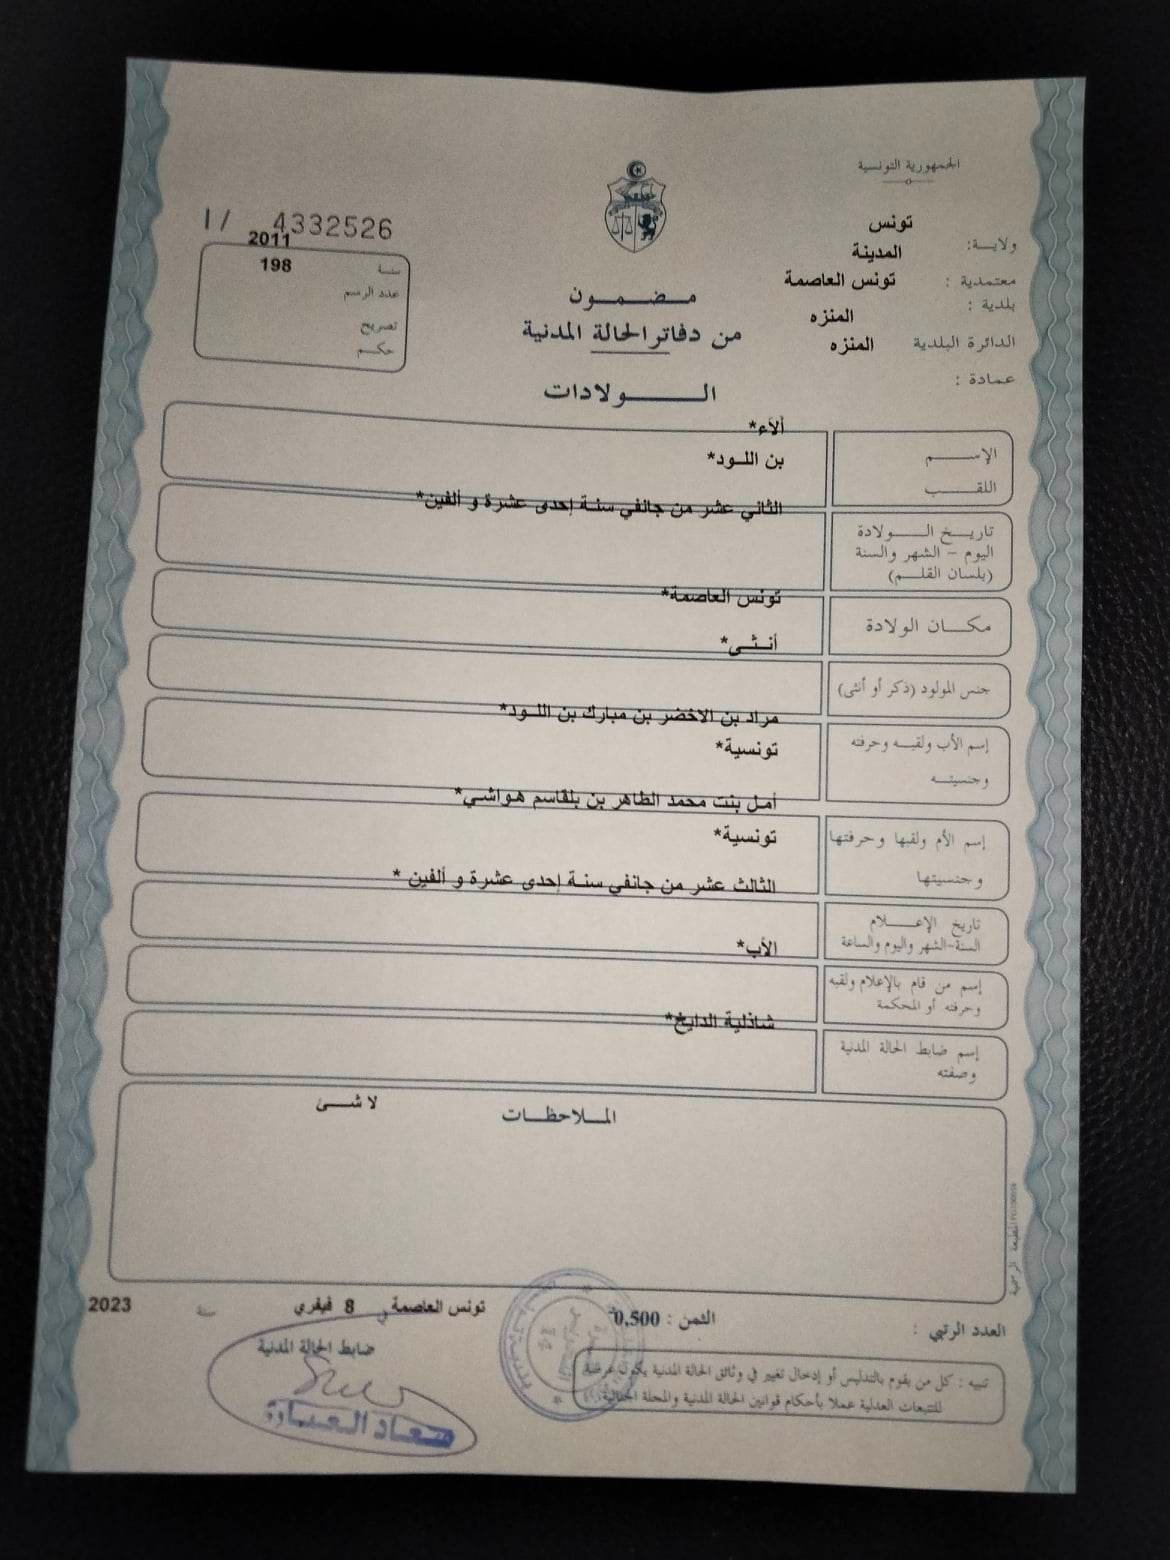 الجمهورية التونسية
ولايـــة: تونس
المدينة
معتمدية : تونس العاصمة
بلدية :
المنزه
الدائرة البلدية المنزه
عمادة :
1/ 4332526
2011
سنـة 198
عدد الرسم
تصريح
حكـــم
مــضــمــون
من دفاتر الحالة المدنية
الــــــولادات
ألاء*
الإســـــم
بن اللـود*
اللقـــــب
الثاني عشر من جانفي سنـة إحدى عشرة و ألفين*
تاريــخ الـــــولادة
اليوم – الشهر والسنة
(بلسان القلـــم)
تونس العاصمة*
مكـــان الولادة
أنــثــى*
جنس المولود (ذكر أو أنثى)
مراد بن الاخضر بن مبارك بن اللـود*
إسم الأب ولقبـــه وحرفته
تونسية*
وجنسيتـــه
أمـل بنت محمد الطاهر بن بلقاسم هـواشـي*
إسم الأم ولقبها وحرفتها
تونسية*
وجنسيتها
الثالث عشر من جانفي سنـة إحدى عشرة و ألفين *
تاريخ الإعـــــلام
السنة-الشهر واليوم والساعة
الأب*
إسم من قام بالإعلام ولقبه
وحرفته أو المحكمة
شاذلية الدايخ*
إسم ضابط الحالة المدنية
وصفته
المـــلاحظـــات
لا شــــئ
المطبعة الرسمية
العدد الرتبي :
الثمن : 0,500
تونس العاصمة في 8 فيفري سنة 2023
ضابط الحالة المدنية
سعـاد العـمـاري
تنبيه : كل من يقوم بالتدليس أو إدخال تغيير في وثائق الحالة المدنية يكون عرضة
للتتبعات العدلية عملا بأحكام قوانين الحالة المدنية والمجلة الجنائية.